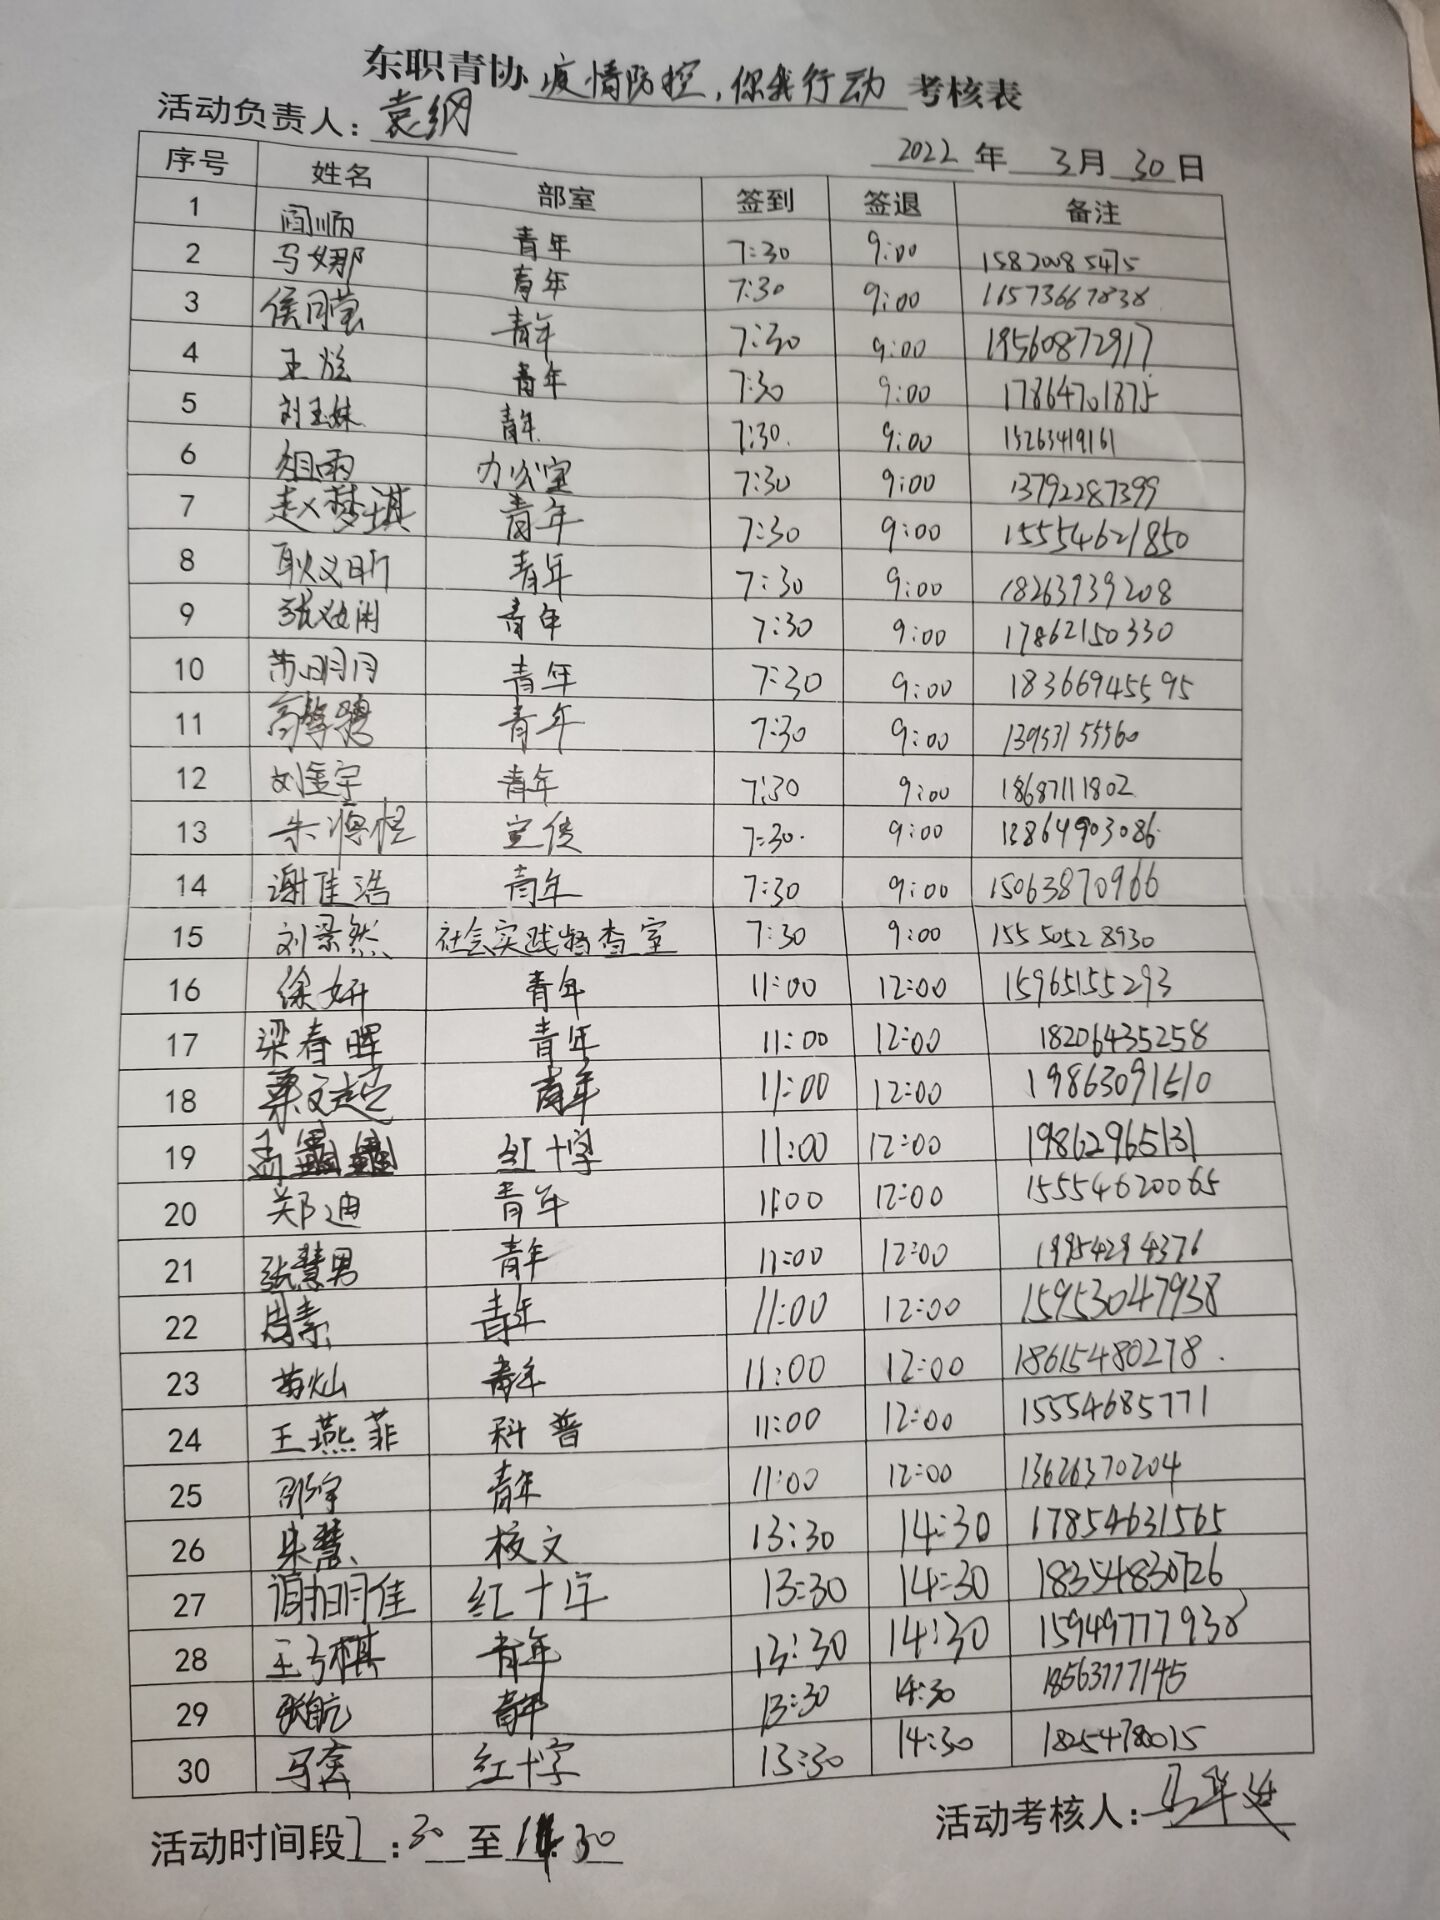 东职青协 疫情防控，你我行动 考核表
活动负责人：袁纲
2022 年 3月 30日
序号 姓名 部室 签到 签退 备注
1 闫顺 青年 7:30 9:00 15820085475
2 马娜 青年 7:30 9:00 16573667838
3 侯月莹 青年 7:30 9:00 19560872917
4 王炫 青年 7:30 9:00 17864701875
5 刘玉妹 青年 7:30 9:00 15263419161
6 祖雨 办公室 7:30 9:00 13792287399
7 赵梦琪 青年 7:30 9:00 15554621850
8 耿义昕 青年 7:30 9:00 18263939208
9 青年 7:30 9:00 17862150330
10 苏明月 青年 7:30 9:00 18366945595
11 青年 7:30 9:00 13953155560
12 刘金宇 青年 7:30 9:00 18687111802
13 宣传 7:30 9:00 13864903086
14 谢佳浩 青年 7:30 9:00 15063870966
15 刘梁然 社会实践督查室 7:30 9:00 15550528930
16 徐妍 青年 11:00 12:00 15965155293
17 梁春晖 青年 11:00 12:00 18206435258
18 桑文超 青年 11:00 12:00 19863091510
19 孟 红十字 11:00 12:00 19862965131
20 郑迪 青年 11:00 12:00 15554620065
21 张慧男 青年 11:00 12:00 19954294376
22 周素 青年 11:00 12:00 15953047938
23 苗灿 青年 11:00 12:00 18615480278
24 王燕菲 科普 11:00 12:00 15554685771
25 邵宇 青年 11:00 12:00 13626370204
26 朱慧 校文 13:30 14:30 17854631565
27 谓明佳 红十字 13:30 14:30 18354830726
28 王子棋 青年 13:30 14:30 15949777938
29 张航 青年 13:30 14:30 18563777145
30 马奔 红十字 13:30 14:30 18254780015
活动时间段 7:30 至 14:30
活动考核人：马华延